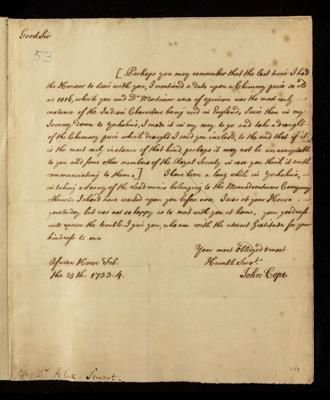 Good Sir
53
[Perhaps you may remember that the last time I had
the Honour to dine with you, I mentioned a date upon a Chimny piece so old
as 1016, which you and Dr. Mortimer were of opinion was the most early
instance of the Indian Characters being used in England, Since then in my
Journey down to Yorkshire, I made it in my way to go and take a draught
of the Chimny piece which draught I send you inclosed, to the end that if it
is the most early instance of that kind perhaps it may not be unacceptable
to you and some other members of the Royal Society in case you think it worth
communicating to them.] I have been a long while in Yorkshire,
in taking a Survey of the Lead mines belonging to the Company
otherwise I should have waited upon you before now, I was at your House
yesterday but was not so happy as to meet with you at home, your goodness
will excuse the trouble I give you, who am with the utmost Gratitude for your
kindness to me
Your most Obliged & most
African House Feb. Humble Servt.
the 25th. 1733-4. John Cope
Dr. Alex. Stuart.